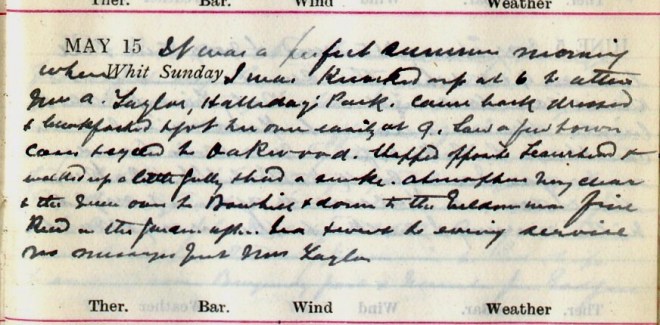 Ther. Bar. Wind Weather
MAY 15 It was a perfect summer morning
when Whit Sunday I was knocked up at 6 to attend
Mrs A. Taylor, Halliday's Park. Came back dressed
& breakfasted & got her over easily at 9. Saw a few town
cases & cycled to Oakwood. Stopped opposite &
walked up a little gully & had a smoke. Atmosphere very clear
& the view over to Bowhill & down to the Eildons was fine
Read in the garden after tea & went to evening service
no messages but Mrs Taylor
Ther. Bar. Wind Weather